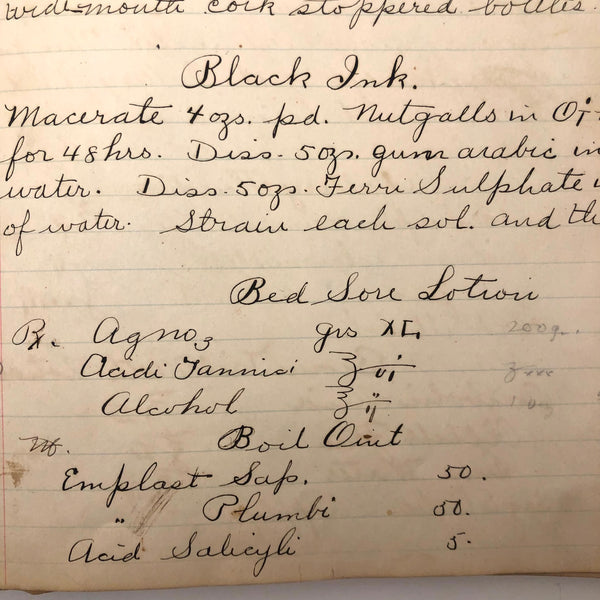 wide-mouth cork stoppered bottles.
Black Ink.
Macerate 4 ozs. pd. Nutgalls in Oi
for 48 hrs. Diss. 5 ozs. gum arabic in
water. Diss. 5 ozs. Ferri Sulphate
of water. Strain each sol. and th
Bed Sore Lotion
Rx. Agno3 grs XL
Acidi Tannici ʒ
Alcohol ℥ ij
Boil Out
Emplast Sap. 50.
„ Plumbi 50.
Acid Salicyli 5.